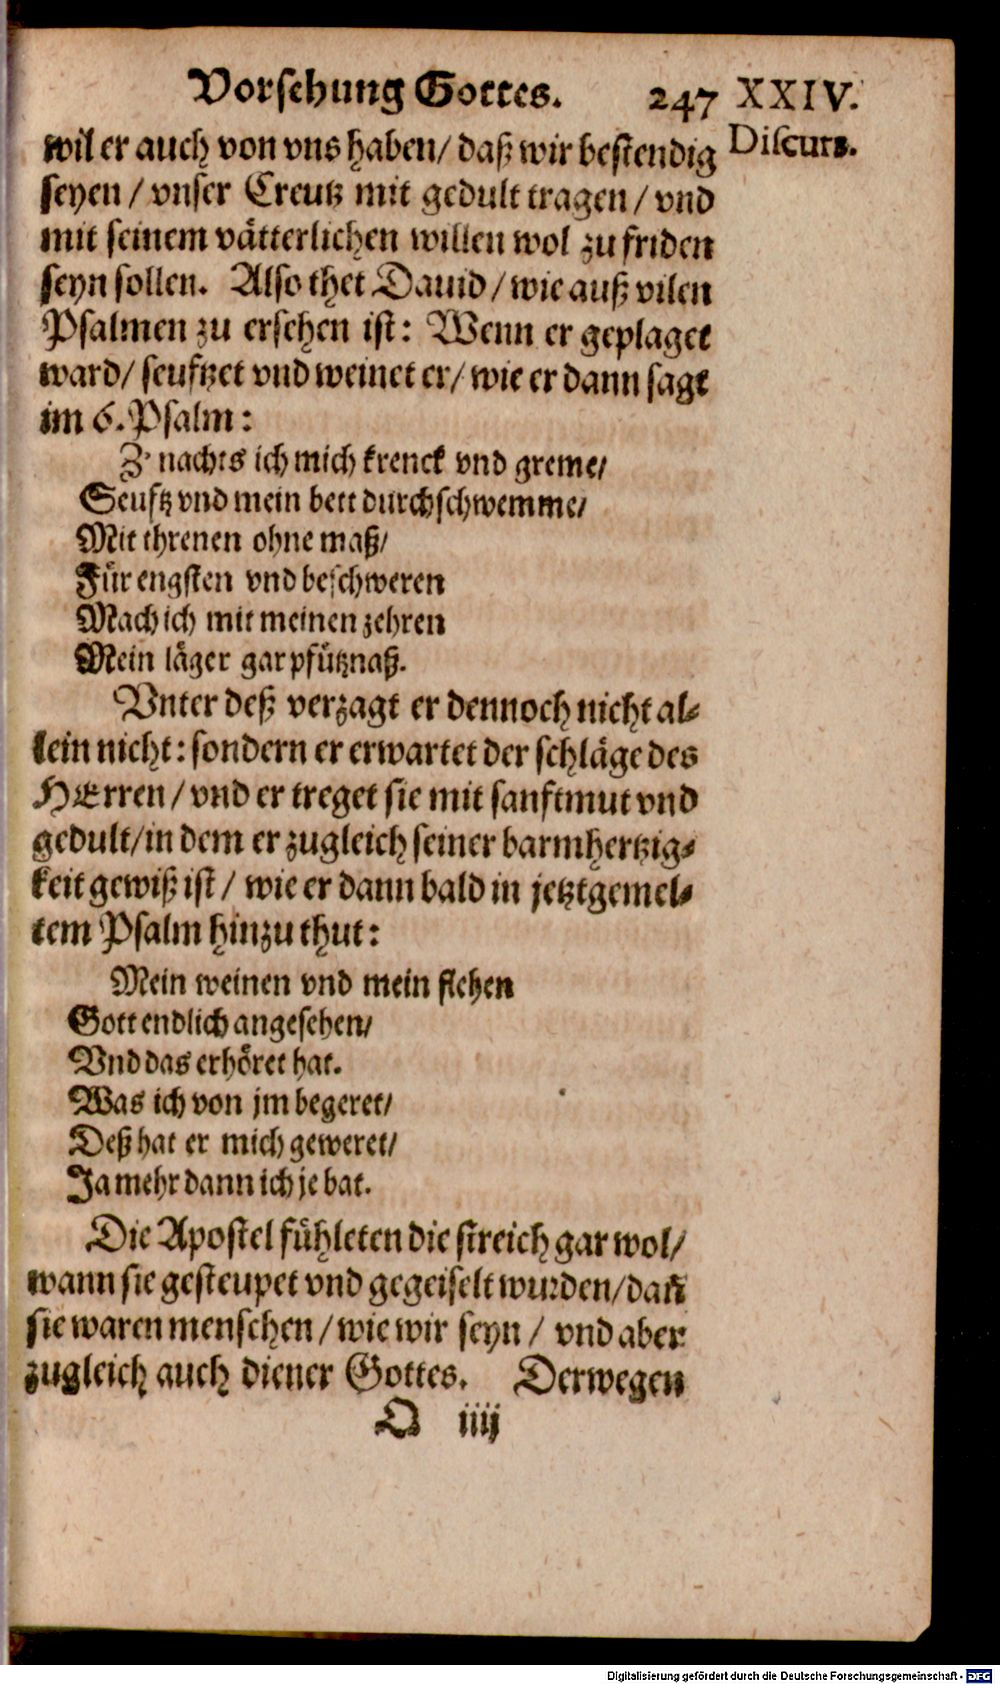 Vorsehung Gottes. 247 XXIV.
Discurs.
wil er auch von vns haben/ daß wir bestendig
seyen / vnser Creutz mit gedult tragen / vnd
mit seinem vätterlichen willen wol zu friden
seyn sollen. Also thet Dauid / wie auß vilen
Psalmen zu ersehen ist: Wenn er geplaget
ward/ seufftzet vnd weinet er/ wie er dann sagt
im 6. Psalm:
Z' nachts ich mich krenck vnd greme/
Seufftz vnd mein bett durchschwemme/
Mit threnen ohne maß/
Für engsten vnd beschweren
Mach ich mit meinen zehren
Mein läger gar pfütznaß.
Vnter deß verzagt er dennoch nicht al-
lein nicht: sondern er erwartet der schläge des
HErren / vnd er treget sie mit sanftmut vnd
gedult/ in dem er zugleich seiner barmhertzig-
keit gewiß ist / wie er dann bald in jetztgemel-
tem Psalm hinzu thut:
Mein weinen vnd mein flehen
Gott endlich angesehen/
Vnd das erhöret hat.
Was ich von jm begeret/
Deß hat er mich geweret/
Ja mehr dann ich je bat.
Die Apostel fühleten die streich gar wol/
wann sie gesteupet vnd gegeiselt wurden/ dañ
sie waren menschen / wie wir seyn / vnd aber
zugleich auch diener Gottes. Derwegen
Q iiij
Digitalisierung gefördert durch die Deutsche Forschungsgemeinschaft - DFG